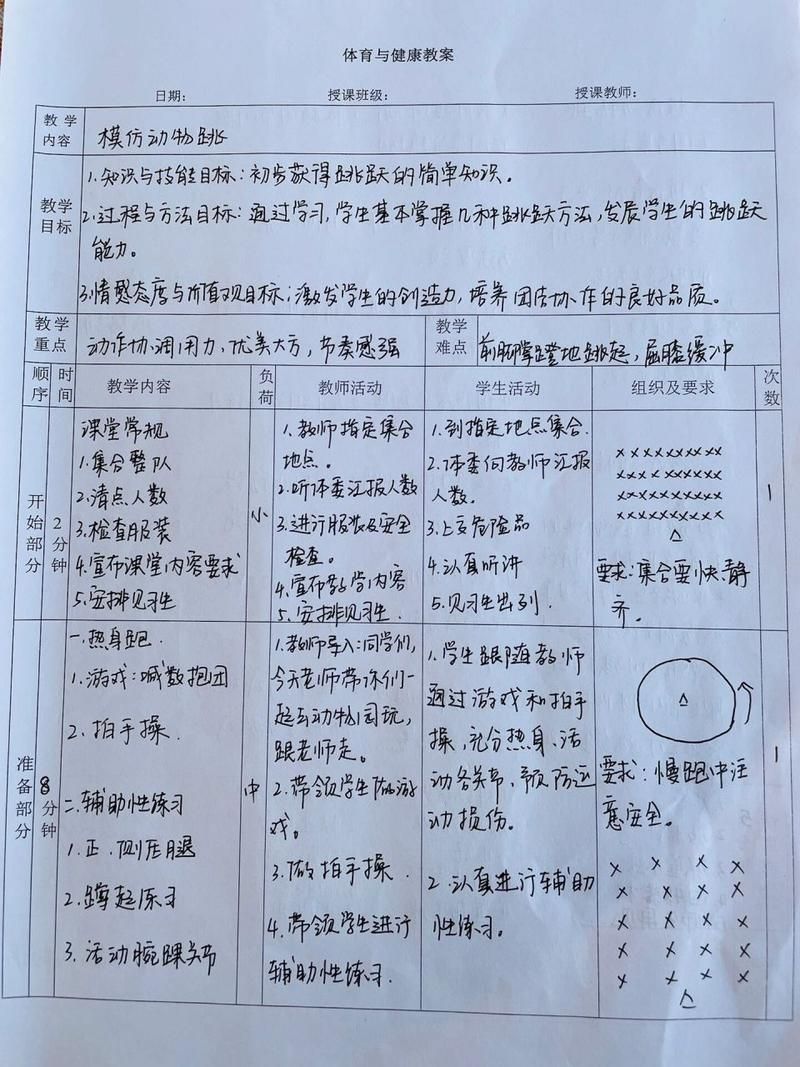 体育与健康教案
日期： 授课班级： 授课教师：
教学内容
模仿动物跳
教学目标
1.知识与技能目标：初步获得跳跃的简单知识。
2.过程与方法目标：通过学习，学生基本掌握几种跳跃方法，发展学生的跳跃
能力。
3.情感态度与价值观目标：激发学生的创造力，培养团结协作的良好品质。
教学重点
动作协调用力，优美大方，节奏感强
教学难点
前脚掌蹬地跳起，屈膝缓冲
顺序 时间 教学内容 负荷 教师活动 学生活动 组织及要求 次数
开始部分
2分钟
课堂常规
1.集合整队
2.清点人数
3.检查服装
4.宣布课堂内容要求
5.安排见习生
小
1.教师指定集合
地点。
2.听体委汇报人数
3.进行服装及安全
检查。
4.宣布教学内容
5.安排见习生.
1.到指定地点集合.
2.体委向教师汇报
人数。
3.上交危险品
4.认真听讲
5.见习生出列.
×××××××××
×××××××××
×××××××××
×××××××××
△
要求：集合要快、静、
齐。
1
准备部分
8分钟
一.热身跑.
1.游戏：喊数抱团
2.拍手操.
二.辅助性练习
1.正、侧压腿
2.蹲起练习
3.活动腕踝关节
中
1.教师导入：同学们，
今天老师带你们一
起去动物园玩，
跟老师走。
2.带领学生做游
戏。
3.做拍手操.
4.带领学生进行
辅助性练习.
1.学生跟随教师
通过游戏和拍手
操，充分热身、活
动各关节，预防运
动损伤。
2.认真进行辅助
性练习。
△
要求：慢跑中注
意安全。
× × × ×
× × × ×
× × × ×
× × × ×
× × × ×
△
1